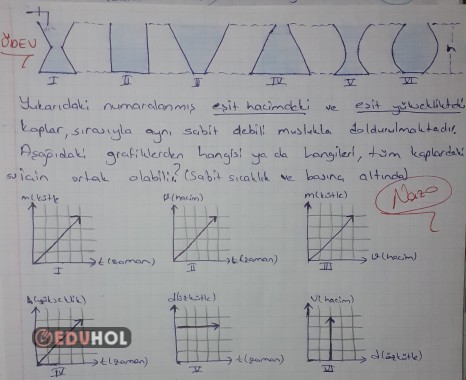 ÖDEV
h
I II III IV V VI
Yukarıdaki numaralanmış eşit hacimdeki ve eşit yükseklikteki
kaplar, sırasıyla aynı sabit debili muslukla doldurulmaktadır.
Aşağıdaki grafiklerden hangisi ya da hangileri, tüm kaplardaki
su için ortak olabilir? (Sabit sıcaklık ve basınç altında)
m(kütle) V(hacim) m(kütle)
t(zaman) t(zaman) V(hacim)
I II III
h(yükseklik) d(özkütle) V(hacim)
EDUHOL
t(zaman) t(zaman) d(özkütle)
IV V VI